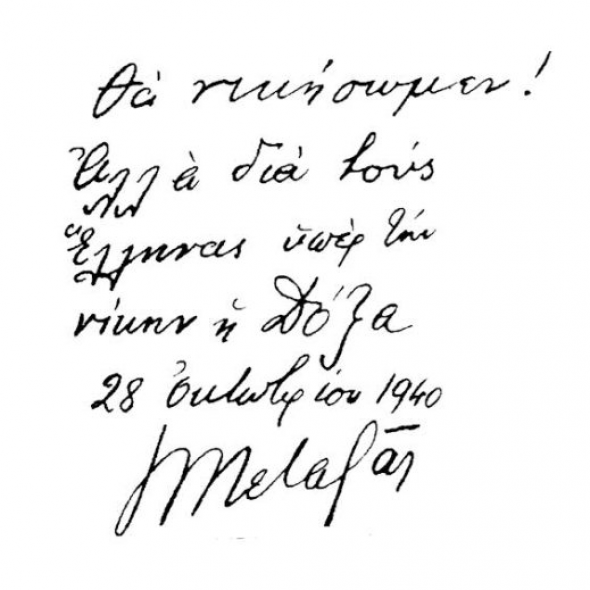 Θά νικήσωμεν!
Ἀλλὰ διά τούς
Ἕλληνας ὑπέρ τήν
νίκην ἡ Δόξα
28 Ὀκτωβρίου 1940
Ι Μεταξᾶς